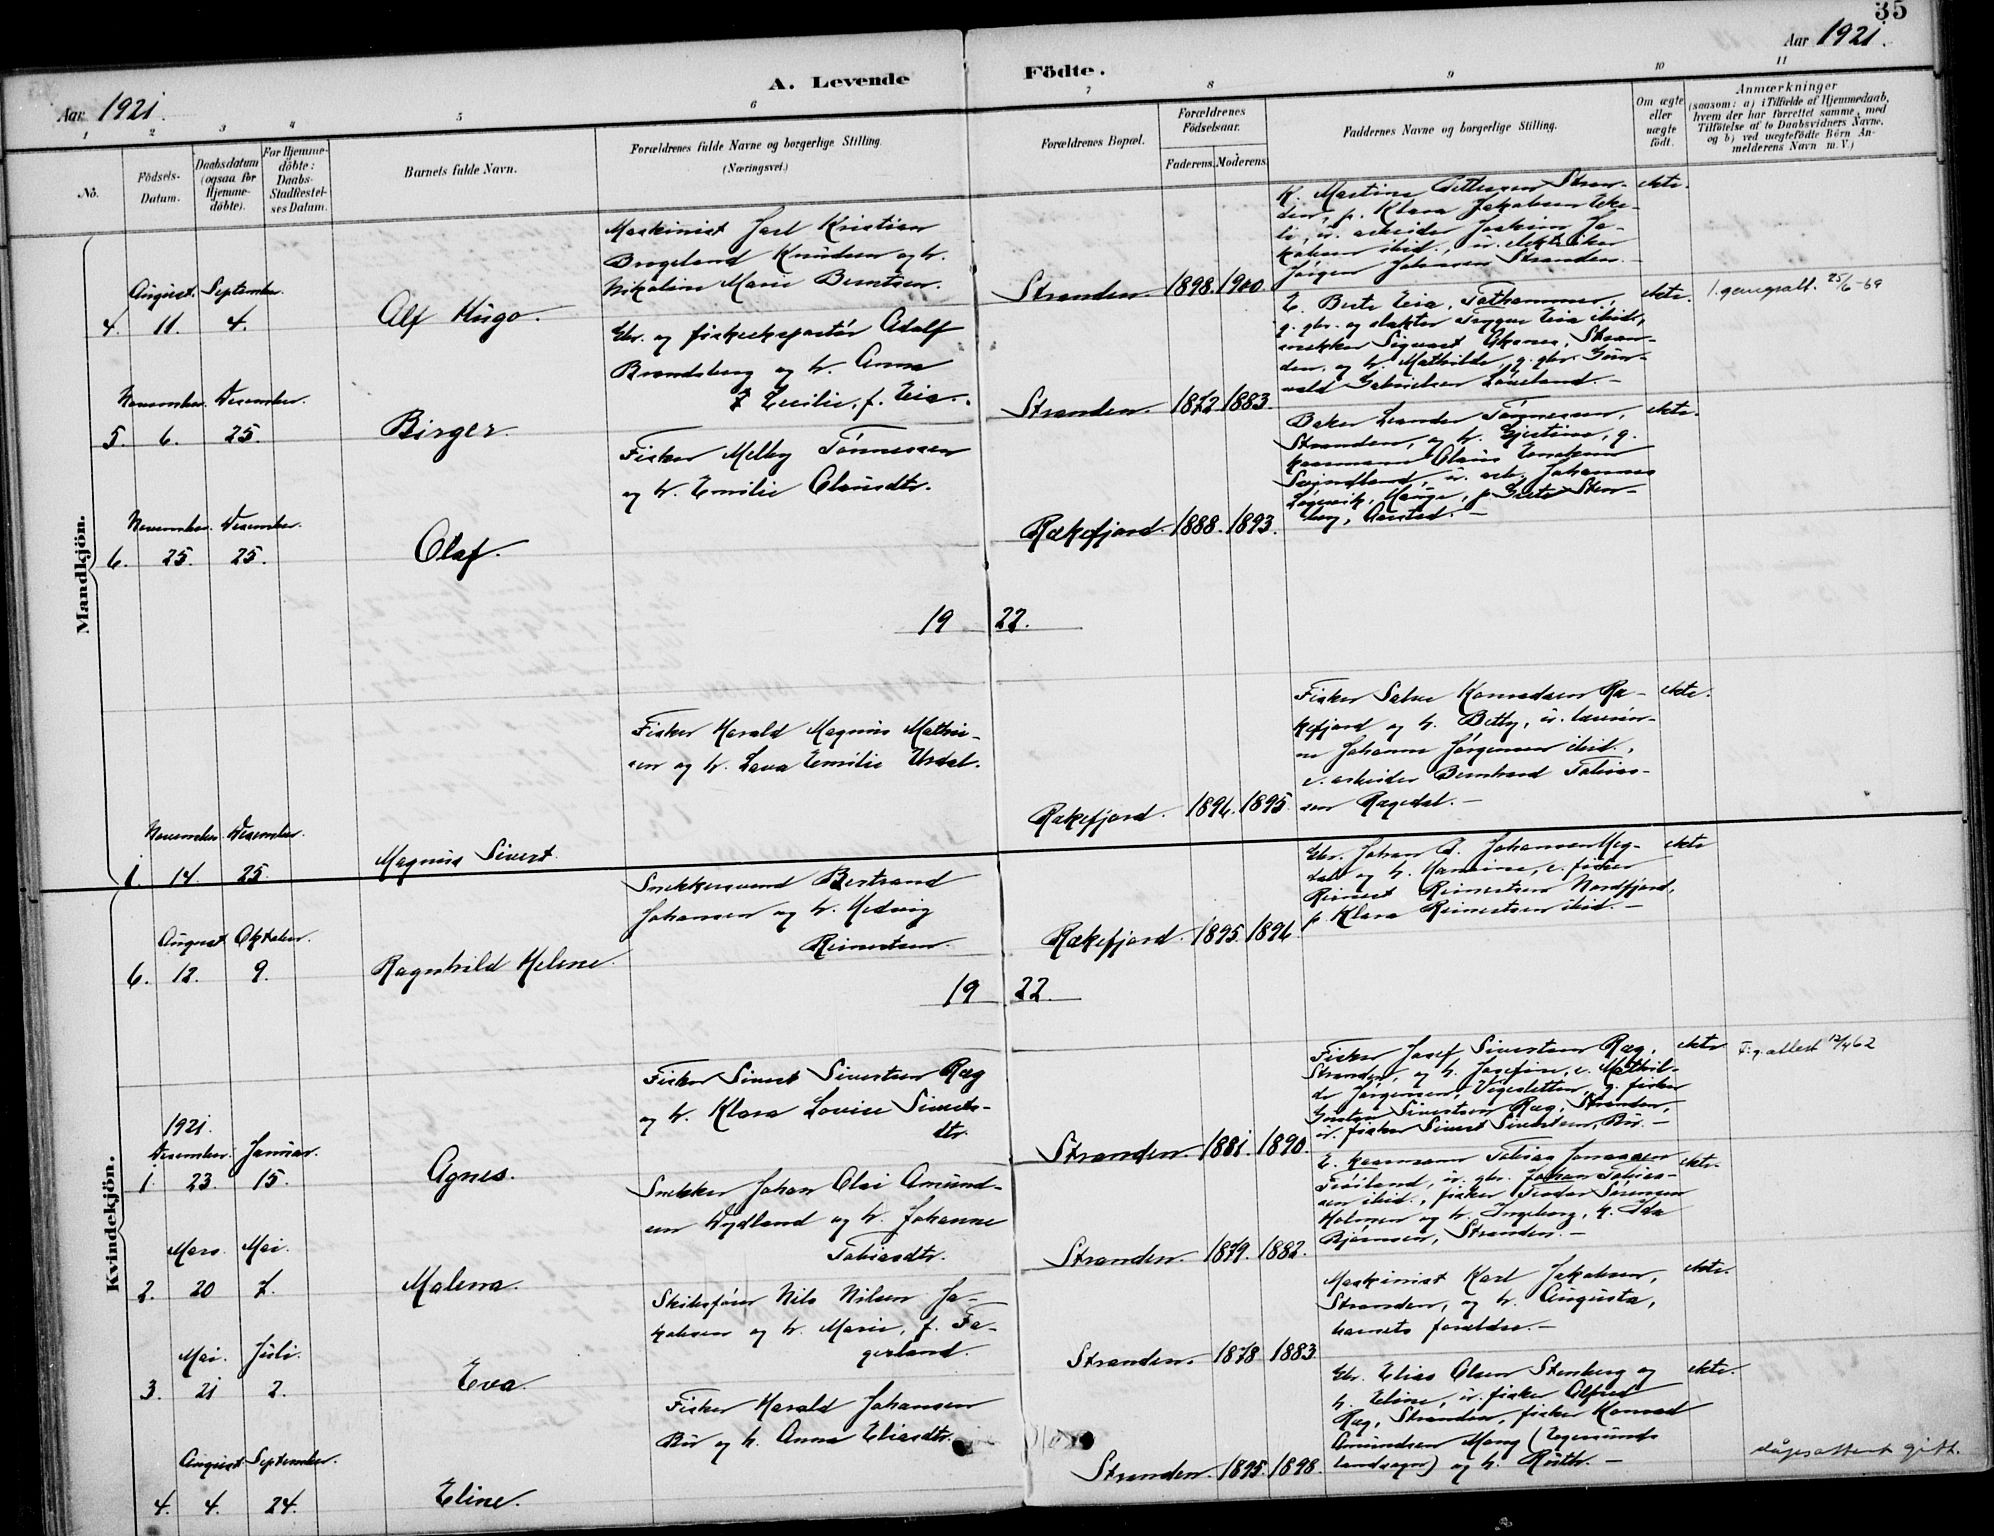 35
Aar 1921.
Aar 1921.
A. Levende Födte.
1 2 3 4 5 6 7 8 9 10 11
No.
Födsels-
Datum.
Daabsdatum
(ogsaa for
Hjemme-
döbte).
For Hjemme-
döbte:
Daabs-
Stadfæstel-
ses Datum.
Barnets fulde Navn.
Forældrenes fulde Navne og borgerlige Stilling.
(Næringsvei.)
Forældrenes Bopæl.
Forældrenes
Födselsaar.
Faderens. Moderens.
Faddernes Navne og borgerlige Stilling.
Om ægte
eller
uægte
födt.
Anmærkninger
(saasom: a) i Tilfælde af Hjemmedaab,
hvem der har forrettet samme, med
Tilföielse af to Daabsvidners Navne,
og b) ved uægtefödte Börn An-
melderens Navn m. V.)
Mandkjön.
August. September.
4. 11. 4.
Alf Hugo.
Maskinist Karl Kristian
Brogeland Knudsen og h.
Nikoline Marie Berntsen.
Stranden. 1898. 1900.
K. Martine Pettersen Stran-
den, p. Klara Jakobsen Eke-
li, u. arbeider Joakim Ja-
kobsen ibid., u. elektriker
Jörgen Johansen Stranden.
ekte.
November. Desember.
5. 6. 25.
Birger.
Gbr. og fiskeeksportör Adolf
Brandsberg og h. Anna
Cecilie, f. Eia.
Stranden. 1872. 1883.
E. Berte Eia, Tothammer,
g. gbr. og slakter Trygve Eia ibid.,
snekker Sigvart Økenes, Stran-
den, og h. Mathilde, g. gbr. Gun-
vald Gabrielsen Löveland.
ekte.
1. gangsatt. 25/6-69
November. Desember.
6. 25. 25.
Olaf.
Fisker Melby Tönnessen
og h. Emilie Olausdtr.
Rekefjord. 1888. 1893.
Baker Leander Tönnessen,
Stranden, og h. Gjertine, g.
kaarmann Olaus Enokson
Svindland, u. arb. Johannes
Lögevik, Hauge, p. Grete Sten-
berg, Aarstad.
ekte.
19 22.
November. Desember.
1. 14. 25.
Magnus Sivert.
Fisker Harald Magnus Mathi-
sen og h. Lava Emilie Ursdal.
Rekefjord. 1894. 1895.
Fisker Salve Konradsen Re-
kefjord og h. Betty, u. lærerin-
ne Johanne Jörgensen ibid.,
e. arbeider Bernhard Tobias-
sen Regedal.
ekte.
Kvindekjön.
August. Oktober.
6. 12. 9.
Ragnhild Helene.
Snekkersvend Bertrand
Johansen og h. Hedvig
Reinertsen.
Rekefjord. 1895. 1896.
Gbr. Johan A. Johansen Meg-
dal og h. Hansine, e. fisker
Reinert Reinertsen Nordfjord,
p. Klara Reinertsen ibid.
ekte
19 22.
1921.
Desember. Januar.
1. 23. 15.
Agnes.
Fisker Sivert Sivertsen Røg
og h. Klara Lovise Siverts-
dtr.
Stranden. 1881. 1890.
Fisker Josef Sivertsen Røg,
Stranden, og h. Josefine, e. Mathil-
de Jörgensen, Vegesletten, g. fisker
Gustav Sivertsen Røg, Stranden,
u. fisker Sivert Sivertsen, Bu.
ekte
F. g. attest 12/4 62
Mars. Mai.
2. 20 7.
Malena.
Snekker Johan Olai Amund-
sen Dydland og h. Johanne
Tobiasdtr.
Stranden. 1879. 1882.
E. kaarmann Tobias Jonassen
Fröiland, u. gbr. Johan Tobias-
sen ibid., fisker Teodor Sörensen
Holmen og h. Ingeborg, h. Ida
Björnsen, Stranden.
ekte.
Mai. Juli.
3. 21 2.
Eva.
Skibsförer Nils Nilsen Ja-
kobsen og h. Marie, f. Fa-
gerland.
Stranden. 1878 1883
Maskinist Karl Jakobsen,
Stranden, og h. Augusta,
barnets foreldre.
ekte.
August. September.
4. 4. 24.
Eline.
Fisker Harald Johansen
Bu og h. Anna Eliasdtr.
Stranden. 1895. 1898.
Gbr. Elias Olsen Stenberg og
h. Eline, u. fisker Alfred
Røg, Stranden, fisker Konrad
Amundsen Mong (Egersunds
landsogn) og h. Ruth.
ekte.
dåpsattest gitt.